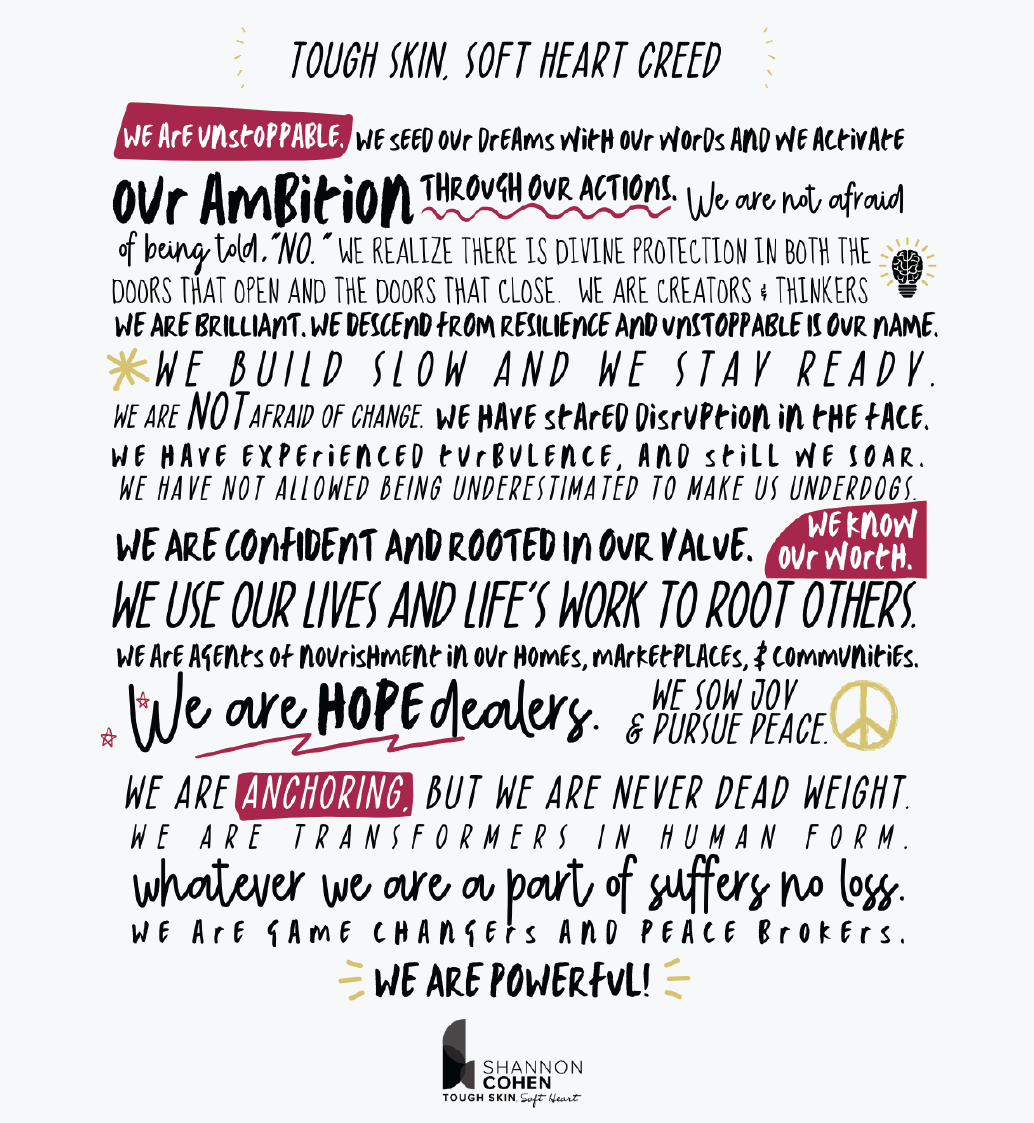 TOUGH SKIN, SOFT HEART CREED
WE ARE UNSTOPPABLE. WE SEED OUR DREAMS WITH OUR WORDS AND WE ACTIVATE
OUR AMBITION THROUGH OUR ACTIONS. We are not afraid
of being told, "NO." WE REALIZE THERE IS DIVINE PROTECTION IN BOTH THE
DOORS THAT OPEN AND THE DOORS THAT CLOSE. WE ARE CREATORS & THINKERS
WE ARE BRILLIANT. WE DESCEND FROM RESILIENCE AND UNSTOPPABLE IS OUR NAME.
WE BUILD SLOW AND WE STAY READY.
WE ARE NOT AFRAID OF CHANGE. WE HAVE STARED DISRUPTION IN THE FACE.
WE HAVE EXPERIENCED TURBULENCE, AND STILL WE SOAR.
WE HAVE NOT ALLOWED BEING UNDERESTIMATED TO MAKE US UNDERDOGS.
WE ARE CONFIDENT AND ROOTED IN OUR VALUE. WE KNOW
OUR WORTH.
WE USE OUR LIVES AND LIFE'S WORK TO ROOT OTHERS.
WE ARE AGENTS OF NOURISHMENT IN OUR HOMES, MARKETPLACES, & COMMUNITIES.
We are HOPE dealers. WE SOW JOY
& PURSUE PEACE.
WE ARE ANCHORING, BUT WE ARE NEVER DEAD WEIGHT.
WE ARE TRANSFORMERS IN HUMAN FORM.
whatever we are a part of suffers no loss.
WE ARE GAME CHANGERS AND PEACE BROKERS.
WE ARE POWERFUL!
SHANNON
COHEN
TOUGH SKIN, Soft Heart